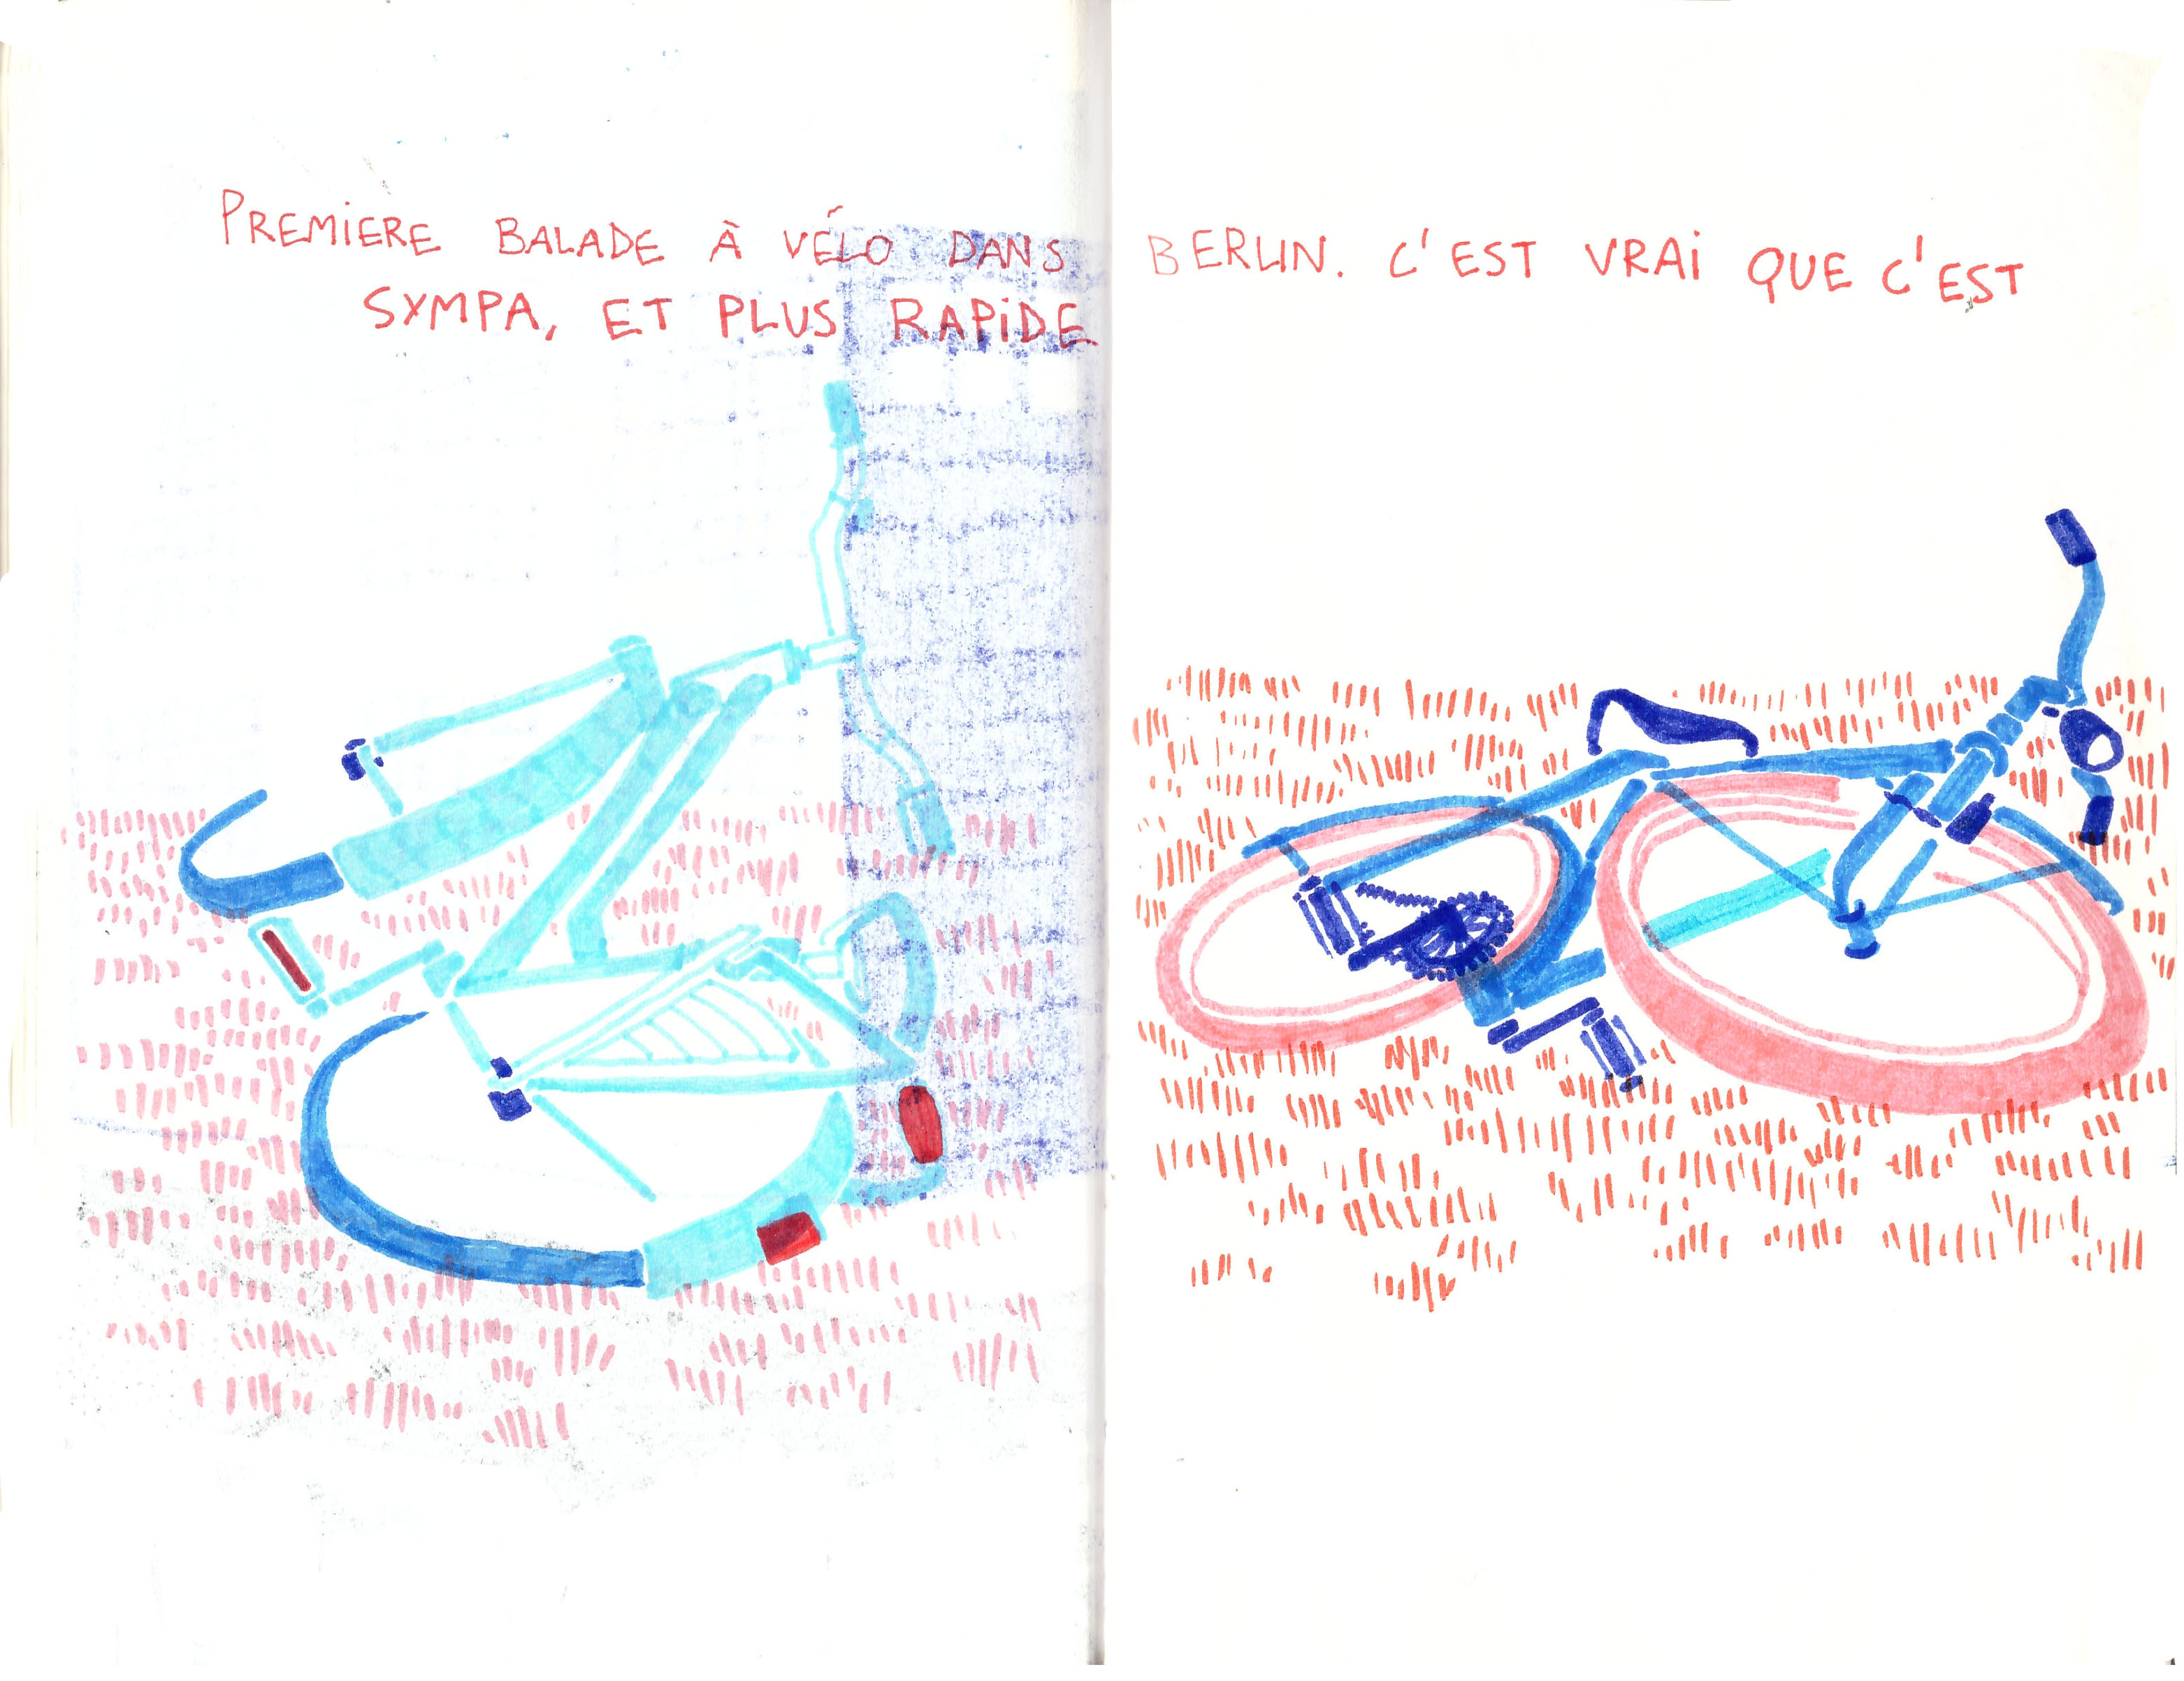 PREMIERE BALADE À VÉLO DANS BERLIN. C'EST VRAI QUE C'EST
SYMPA, ET PLUS RAPIDE